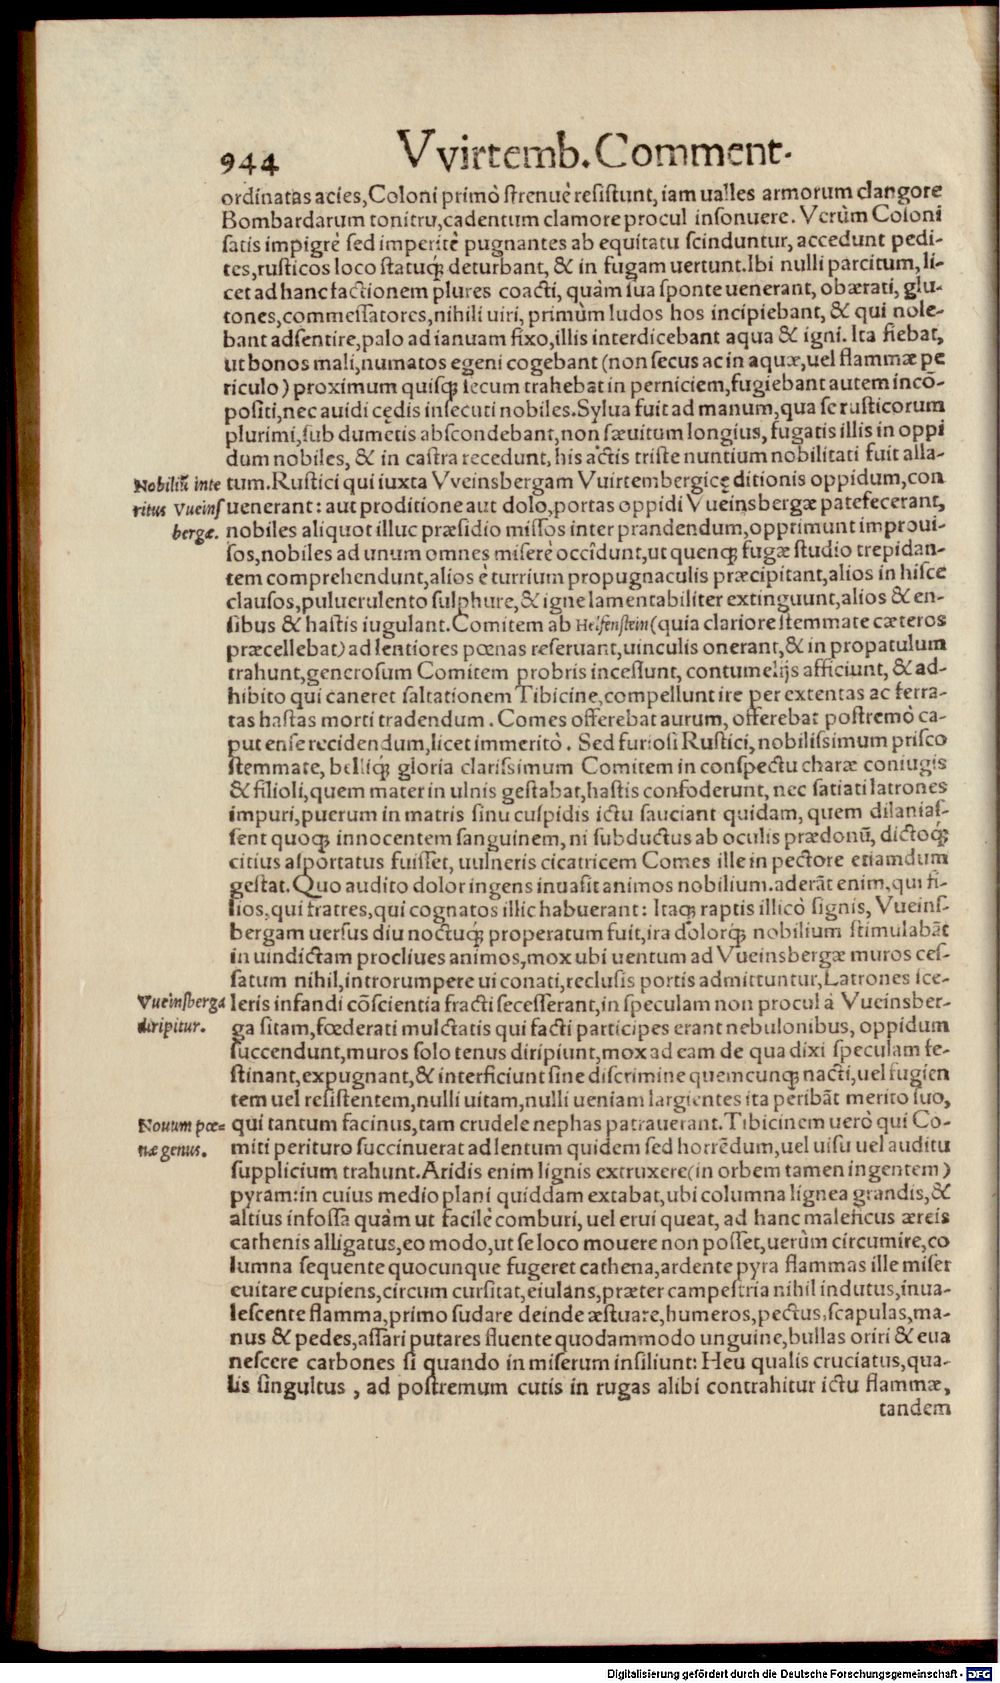 944 Vvirtemb. Comment.
ordinatas acies, Coloni primò ſtrenuè reſiſtunt, iam ualles armorum clangore
Bombardarum tonitru, cadentum clamore procul inſonuere. Verùm Coloni
ſatis impigrè ſed imperitè pugnantes ab equitatu ſcinduntur, accedunt pedi-
tes, ruſticos loco ſtatuq́; deturbant, & in fugam uertunt. Ibi nulli parcitum, li-
cet ad hanc factionem plures coacti, quàm ſua ſponte uenerant, obærati, glu-
tones, commeſſatores, nihili uiri, primùm ludos hos incipiebant, & qui nole-
bant adſentire, palo ad ianuam fixo, illis interdicebant aqua & igni. Ita fiebat,
ut bonos mali, numatos egeni cogebant (non ſecus ac in aquæ, uel flammæ pe
riculo) proximum quiſq; ſecum trahebat in perniciem, fugiebant autem incō-
poſiti, nec auidi cędis inſecuti nobiles. Sylua fuit ad manum, qua ſe ruſticorum
plurimi, ſub dumetis abſcondebant, non ſæuitum longius, fugatis illis in oppi
dum nobiles, & in caſtra recedunt, his actis triſte nuntium nobilitati fuit alla-
Nobiliū inte tum. Ruſtici qui iuxta Vveinsbergam Vuirtembergicę ditionis oppidum, con
ritus Vueinſ uenerant: aut proditione aut dolo, portas oppidi Vueinsbergæ patefecerant,
bergæ. nobiles aliquot illuc præſidio miſſos inter prandendum, opprimunt improui-
ſos, nobiles ad unum omnes miſerè occîdunt, ut quenq; fugæ ſtudio trepidan-
tem comprehendunt, alios è turrium propugnaculis præcipitant, alios in hiſce
clauſos, puluerulento ſulphure, & igne lamentabiliter extinguunt, alios & en-
ſibus & haſtis iugulant. Comitem ab Helfenſtein (quia clariore ſtemmate cæteros
præcellebat) ad lentiores pœnas reſeruant, uinculis onerant, & in propatulum
trahunt, generoſum Comitem probris inceſſunt, contumelijs afficiunt, & ad-
hibito qui caneret ſaltationem Tibicine, compellunt ire per extentas ac ferra-
tas haſtas morti tradendum. Comes offerebat aurum, offerebat poſtremò ca-
put enſe recidendum, licet immeritò. Sed furioſi Ruſtici, nobiliſsimum priſco
ſtemmate, belliq́; gloria clariſsimum Comitem in conſpectu charæ coniugis
& filioli, quem mater in ulnis geſtabat, haſtis confoderunt, nec ſatiati latrones
impuri, puerum in matris ſinu cuſpidis ictu ſauciant quidam, quem dilaniaſ-
ſent quoq; innocentem ſanguinem, ni ſubductus ab oculis prædonū, dictoq́;
citius aſportatus fuiſſet, uulneris cicatricem Comes ille in pectore etiamdum
geſtat. Quo audito dolor ingens inuaſit animos nobilium. aderāt enim, qui fi-
lios, qui fratres, qui cognatos illic habuerant: Itaq; raptis illicò ſignis, Vueinſ-
bergam uerſus diu noctuq́; properatum fuit, ira dolorq́; nobilium ſtimulabāt
in uindictam procliues animos, mox ubi uentum ad Vueinsbergæ muros ceſ-
ſatum nihil, introrumpere ui conati, recluſis portis admittuntur, Latrones ſce-
Vueinſberga leris infandi cōſcientia fracti ſeceſſerant, in ſpeculam non procul à Vueinsber-
diripitur. ga ſitam, fœderati mulctatis qui facti participes erant nebulonibus, oppidum
ſuccendunt, muros ſolo tenus diripiunt, mox ad eam de qua dixi ſpeculam fe-
ſtinant, expugnant, & interficiunt ſine diſcrimine quemcunq; nacti, uel fugien
tem uel reſiſtentem, nulli uitam, nulli ueniam largientes ita peribāt merito ſuo,
Nouum pœ= qui tantum facinus, tam crudele nephas patrauerant. Tibicinem uerò qui Co-
næ genus. miti perituro ſuccinuerat ad lentum quidem ſed horrēdum, uel uiſu uel auditu
ſupplicium trahunt. Aridis enim lignis extruxere (in orbem tamen ingentem)
pyram: in cuius medio plani quiddam extabat, ubi columna lignea grandis, &
altius infoſſa quàm ut facilè comburi, uel erui queat, ad hanc maleficus æreis
cathenis alligatus, eo modo, ut ſe loco mouere non poſſet, uerùm circumire, co
lumna ſequente quocunque fugeret cathena, ardente pyra flammas ille miſer
euitare cupiens, circum curſitat, eiulans, præter campeſtria nihil indutus, inua-
leſcente flamma, primo ſudare deinde æſtuare, humeros, pectus, ſcapulas, ma-
nus & pedes, aſſari putares fluente quodammodo unguine, bullas oriri & eua
neſcere carbones ſi quando in miſerum inſiliunt: Heu qualis cruciatus, qua-
lis ſingultus, ad poſtremum cutis in rugas alibi contrahitur ictu flammæ,
tandem
Digitalisierung gefördert durch die Deutsche Forschungsgemeinschaft - DFG